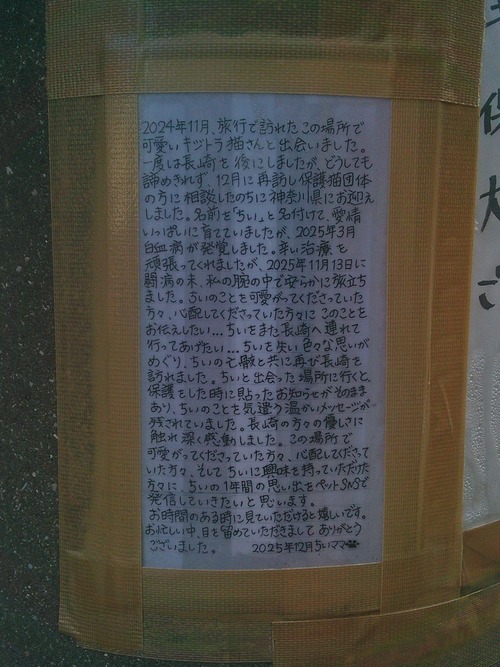 2024年11月、旅行で訪れたこの場所で
可愛いキジトラ猫さんと出会いました。
一度は長崎を後にしましたが、どうしても
諦めきれず、12月に再訪し保護猫団体
の方に相談したのちに神奈川県にお迎え
しました。名前を「ちい」と名付けて、愛情
いっぱいに育てていましたが、2025年3月
白血病が発覚しました。辛い治療を
頑張ってくれましたが、2025年11月13日に
闘病の末、私の腕の中で安らかに旅立ち
ました。ちいのことを可愛がってくださっていた
方々、心配してくださっていた方々にこのことを
お伝えしたい...ちいをまた長崎へ連れて
行ってあげたい...ちいを失い色々な思いが
めぐり、ちいの亡骸と共に再び長崎を
訪れました。ちいと出会った場所に行くと、
保護をした時に貼ったお知らせがそのまま
あり、ちいのことを気遣う温かいメッセージが
残されていました。長崎の方々の優しさに
触れ深く感動しました。この場所で
可愛がってくださっていた方々、心配してくださって
いた方々、そしてちいに興味を持っていただけた
方々に、ちいの1年間の思い出をペットSNSで
発信していきたいと思います。
お時間のある時に見ていただけると嬉しいです。
お忙しい中、目を留めていただきましてありがとう
ございました。 2025年12月ちいママ